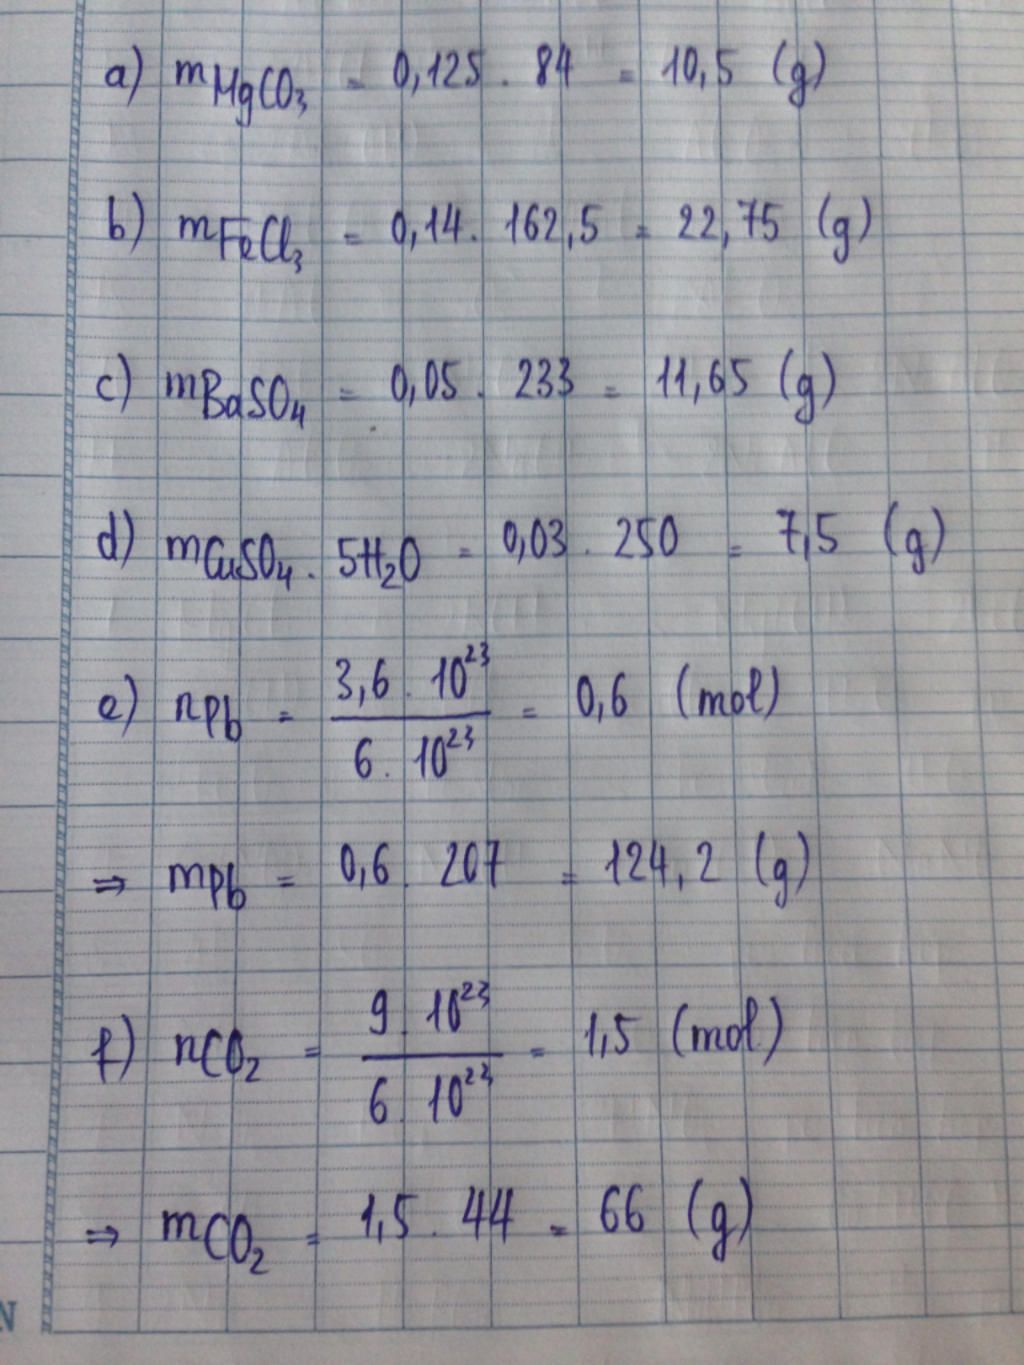 a) mMgCO₃ = 0,125 . 84 = 10,5 (g)
b) mFeCl₃ = 0,14 . 162,5 = 22,75 (g)
c) mBaSO₄ = 0,05 . 233 = 11,65 (g)
d) mCuSO₄ . 5H₂O = 0,03 . 250 = 7,5 (g)
e) nPb = 3,6 . 10²³ / 6 . 10²³ = 0,6 (mol)
⇒ mPb = 0,6 . 207 = 124,2 (g)
f) nCO₂ = 9 . 10²³ / 6 . 10²³ = 1,5 (mol)
⇒ mCO₂ = 1,5 . 44 = 66 (g)
N